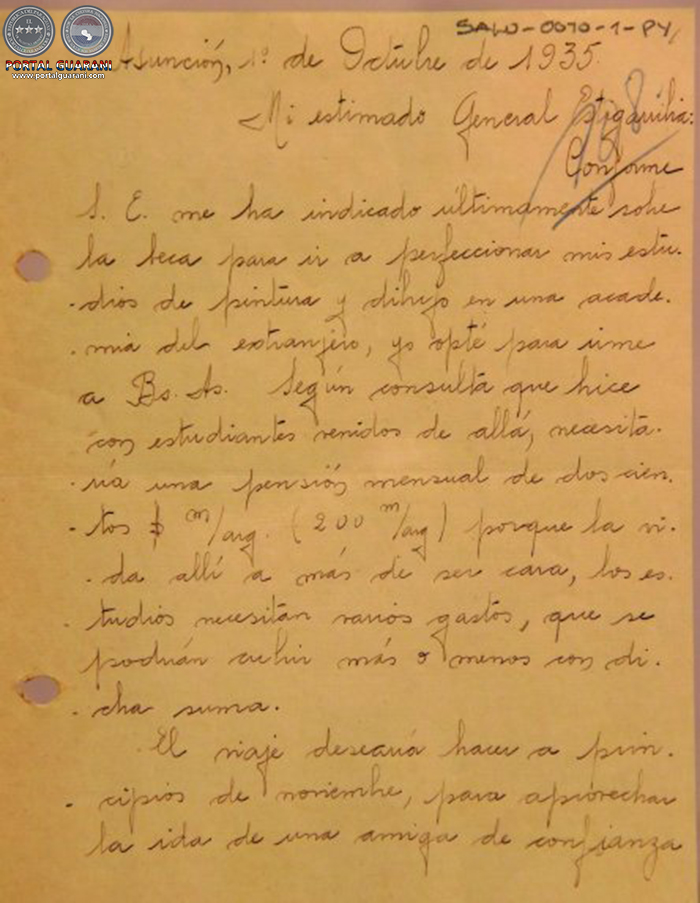 SALW-0070-1-PY
PORTAL GUARANI
www.portalguarani.com
Asunción, 1º de Octubre de 1935.
Mi estimado General Estigarribia:
Conforme
S. E. me ha indicado últimamente sobre
la beca para ir a perfeccionar mis estu-
-dios de pintura y dibujo en una acade-
-mia del extranjero, yo opté para irme
a Bs. As. Según consulta que hice
con estudiantes venidos de allá, necesita-
-ría una pensión mensual de dos cien-
-tos $ m/arg. (200 m/arg) porque la vi-
-da allí a más de ser cara, los es-
-tudios necesitan varios gastos, que se
podrían cubrir más o menos con di-
-cha suma.
El viaje desearía hacer a prin-
-cipios de noviembre, para aprovechar
la ida de una amiga de confianza